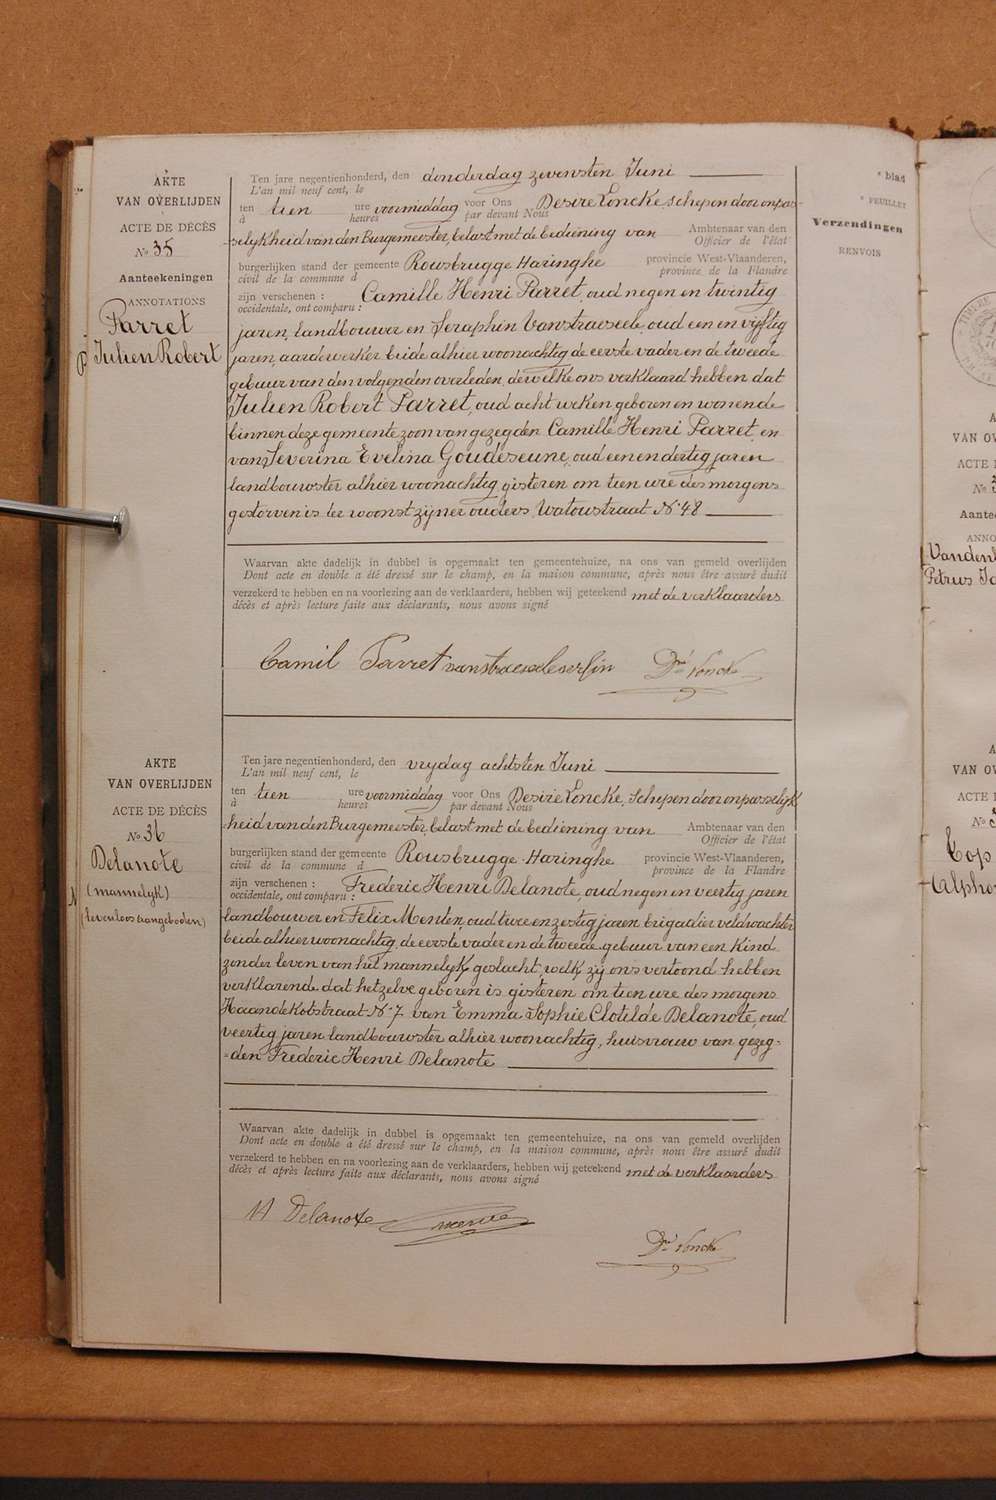 AKTE
VAN OVERLIJDEN
ACTE DE DÉCÈS
No 35
Aanteekeningen
ANNOTATIONS
Parret
Julien Robert
Ten jare negentienhonderd, den donderdag zevensten Juni
L'an mil neuf cent, le
ten tien ure voormiddag voor Ons Desiré Loncke schepen door onpas-
à heures par devant Nous
selijkheid van den Burgemeester, belast met de bediening van Ambtenaar van den
Officier de l'état
burgerlijken stand der gemeente Rousbrugge Haringhe provincie West-Vlaanderen,
civil de la commune d province de la Flandre
zijn verschenen : Camille Henri Parret, oud negen en twintig
occidentale, ont comparu :
jaren, landbouwer en Seraphin Vanstraeseele, oud een en vijftig
jaren, aardewerker beide alhier woonachtig de eerste vader en de tweede
gebuur van den volgenden overleden, dewelke ons verklaard hebben dat
Julien Robert Parret, oud acht weken, geboren en wonende
binnen deze gemeente zoon van gezegden Camille Henri Parret, en
van Severina Evelina Goudeseune, oud een en dertig jaren
landbouwster alhier woonachtig gisteren om tien ure des morgens
gestorven is ter woonst zijner ouders, Watoustraat No 48
Waarvan akte dadelijk in dubbel is opgemaakt ten gemeentehuize, na ons van gemeld overlijden
Dont acte en double a été dressé sur le champ, en la maison commune, après nous être assuré dudit
verzekerd te hebben en na voorlezing aan de verklaarders, hebben wij geteekend met de verklaarders
décès et après lecture faite aux déclarants, nous avons signé
Camil Parret vanstraeseele serfin Dré Lonck
AKTE
VAN OVERLIJDEN
ACTE DE DÉCÈS
No 36
Delanote
(mannelijk)
(levenloos aangeboden)
Ten jare negentienhonderd, den vrydag achtsten Juni
L'an mil neuf cent, le
ten tien ure voormiddag voor Ons Desiré Loncke, Schepen door onpasselijk
à heures par devant Nous
heid van den Burgemeester, belast met de bediening van Ambtenaar van den
Officier de l'état
burgerlijken stand der gemeente Rousbrugge-Haringhe provincie West-Vlaanderen,
civil de la commune d province de la Flandre
zijn verschenen : Frederic Henri Delanote, oud negen en veertig jaren
occidentale, ont comparu :
landbouwer en Felix Menten, oud twee en zestig jaren brigadier veldwachter
beide alhier woonachtig, de eerste vader en de tweede gebuur van een kind
zonder leven van het mannelijk geslacht, welk zij ons vertoond hebben
verklarende dat hetzelve geboren is gisteren om tien ure des morgens
Haandekotstraat No 7 van Emma Sophie Clotilde Delanote, oud
veertig jaren landbouwster alhier woonachtig, huisvrouw van gezeg-
=den Frederic Henri Delanote
Waarvan akte dadelijk in dubbel is opgemaakt ten gemeentehuize, na ons van gemeld overlijden
Dont acte en double a été dressé sur le champ, en la maison commune, après nous être assuré dudit
verzekerd te hebben en na voorlezing aan de verklaarders, hebben wij geteekend met de verklaarders
décès et après lecture faite aux déclarants, nous avons signé
H Delanote
Dré Lonck
blad
FEUILLET
Verzendingen
RENVOIS
VAN OV
ACTE D
No
Aantee
ANNO
Vanden
Petrus Jo
VAN OV
ACTE D
No
Cop
Alpho